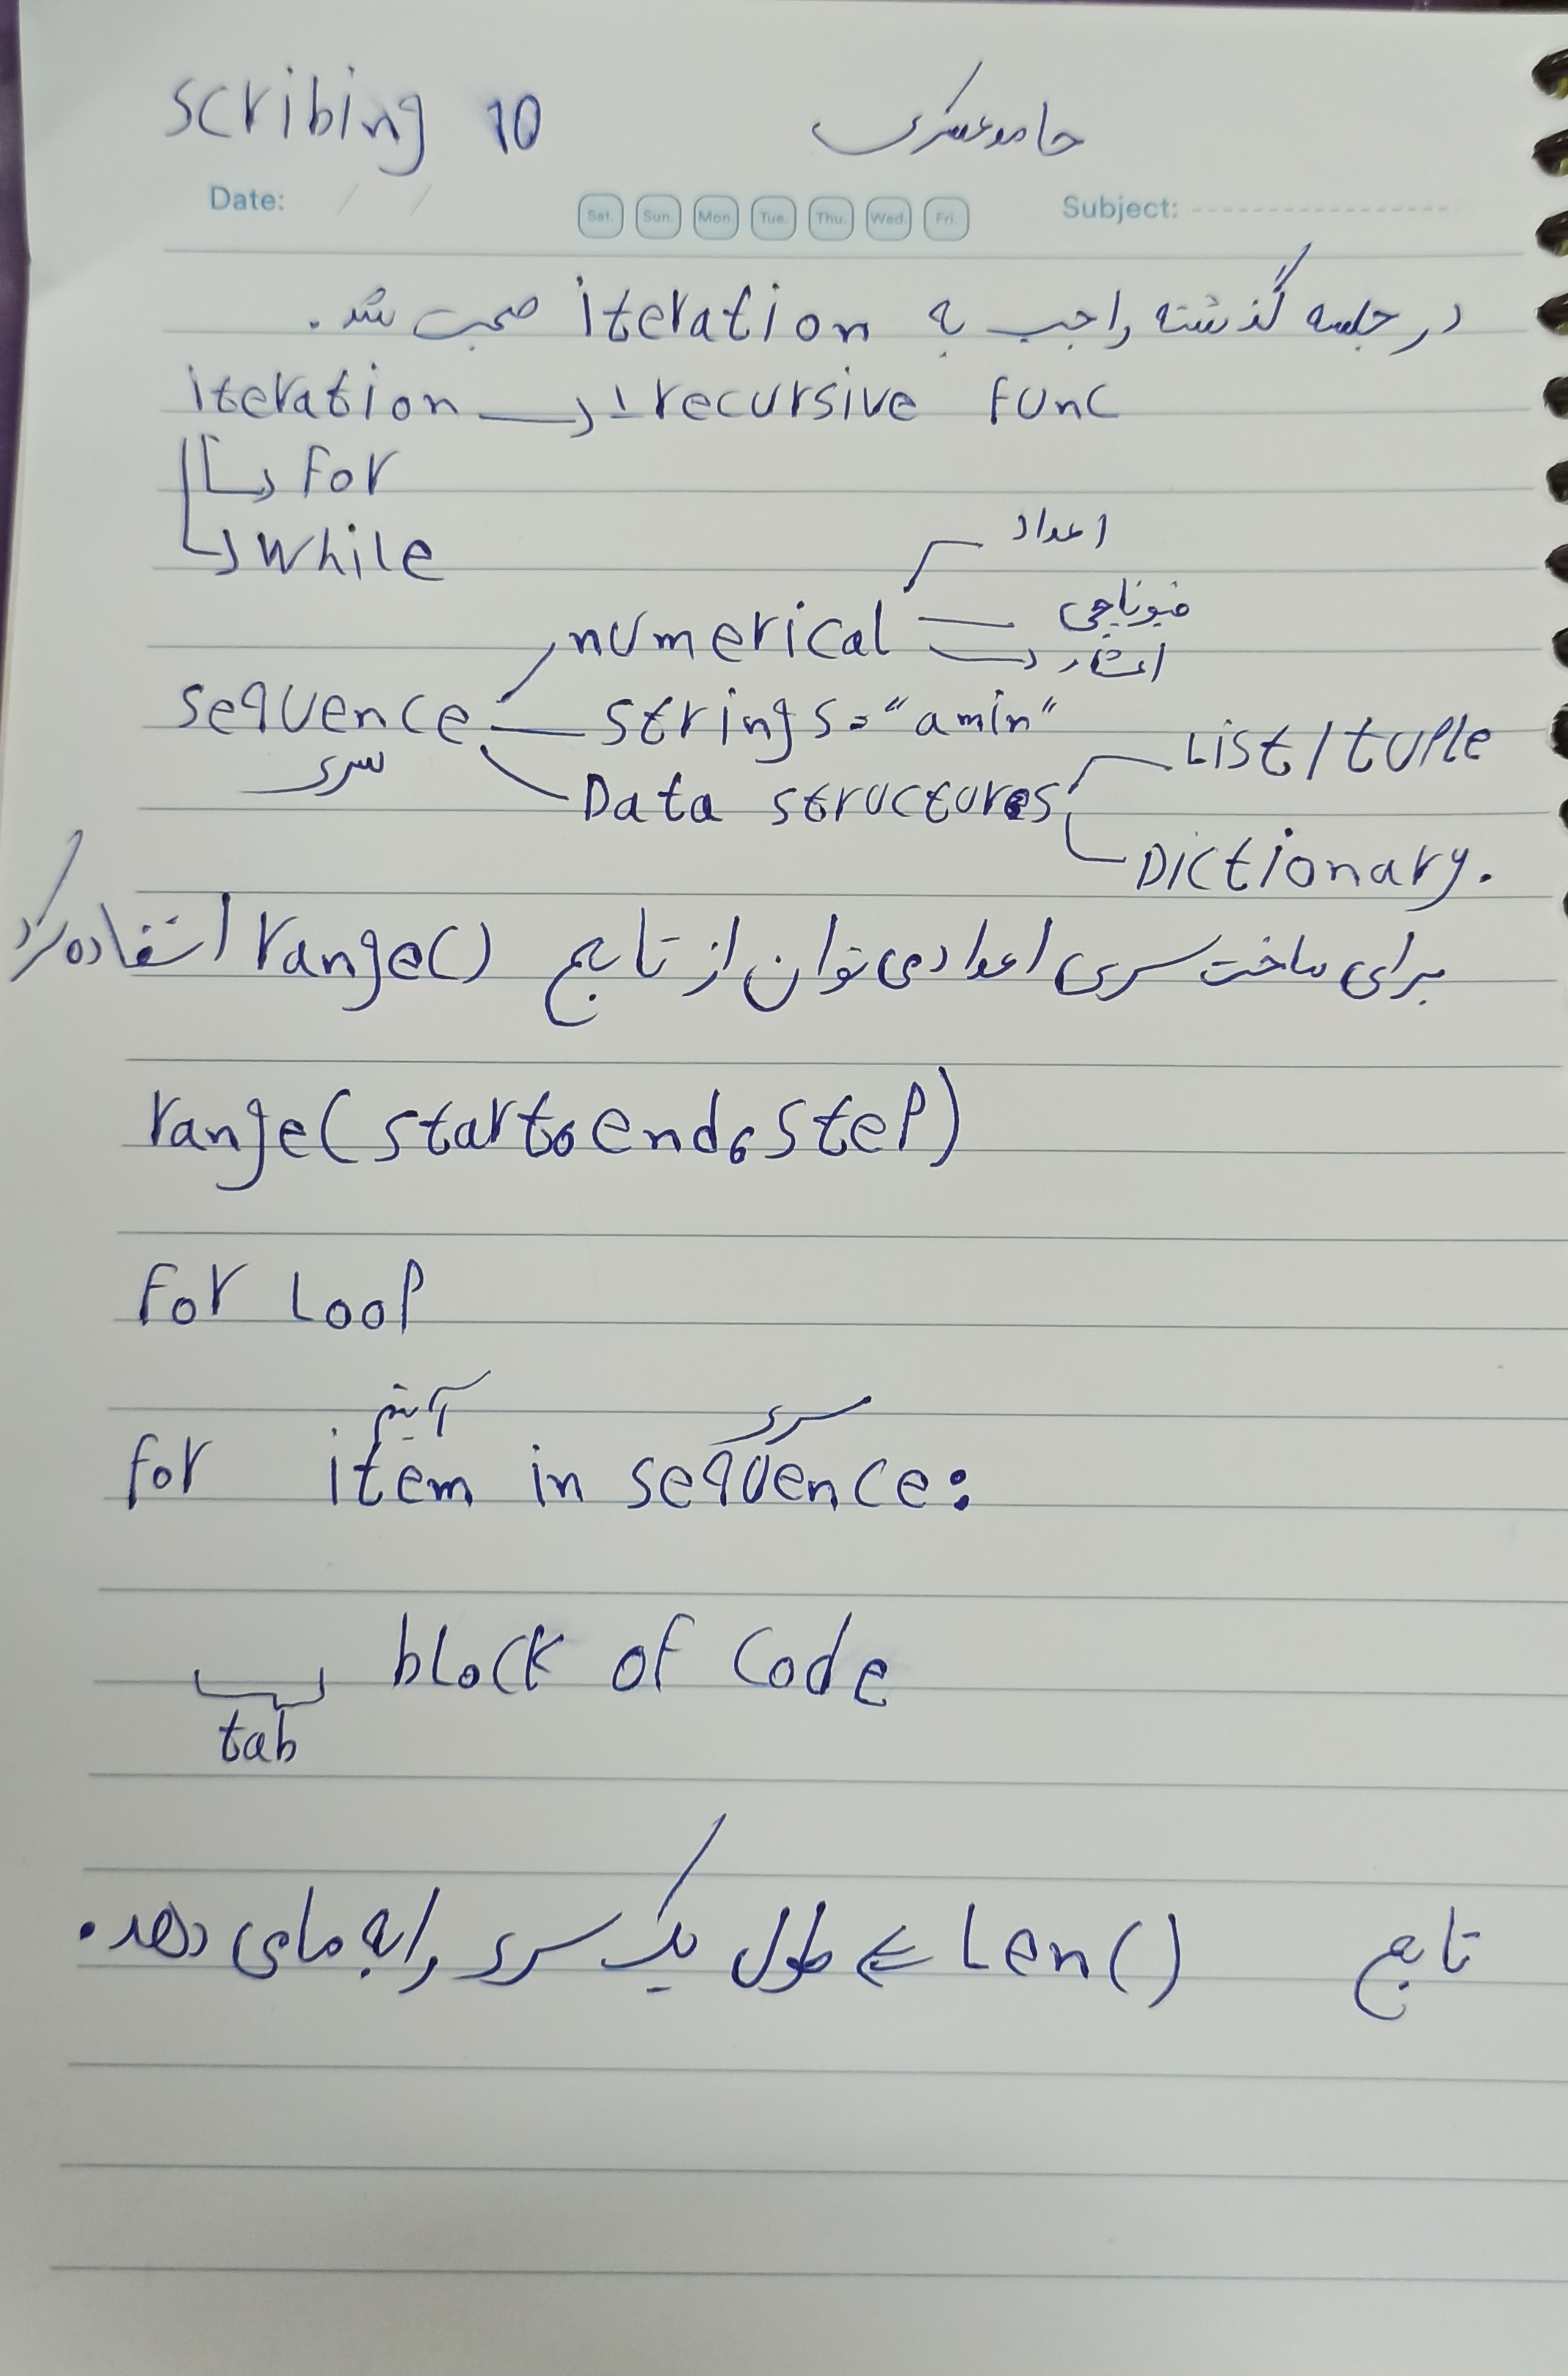 scribing 10 حامد عسکری
Date: / / Sat. Sun. Mon. Tue. Thu. Wed. Fri. Subject:
در جلسه گذشته راجب به iteration صحبت شد.
iteration → 1- recursive func
↳ for
↳ while
اعداد
numerical فیوناچی
اعشار
sequence strings = "amin"
سری List / tuple
Data structures
Dictionary.
برای ساخت سری اعداد می توان از تابع range() استفاده کرد
range(start, end, step)
for Loop
آیتم سری
for item in sequence:
block of code
tab
تابع Len() ⇐ طول یک سری را به ما می دهد.